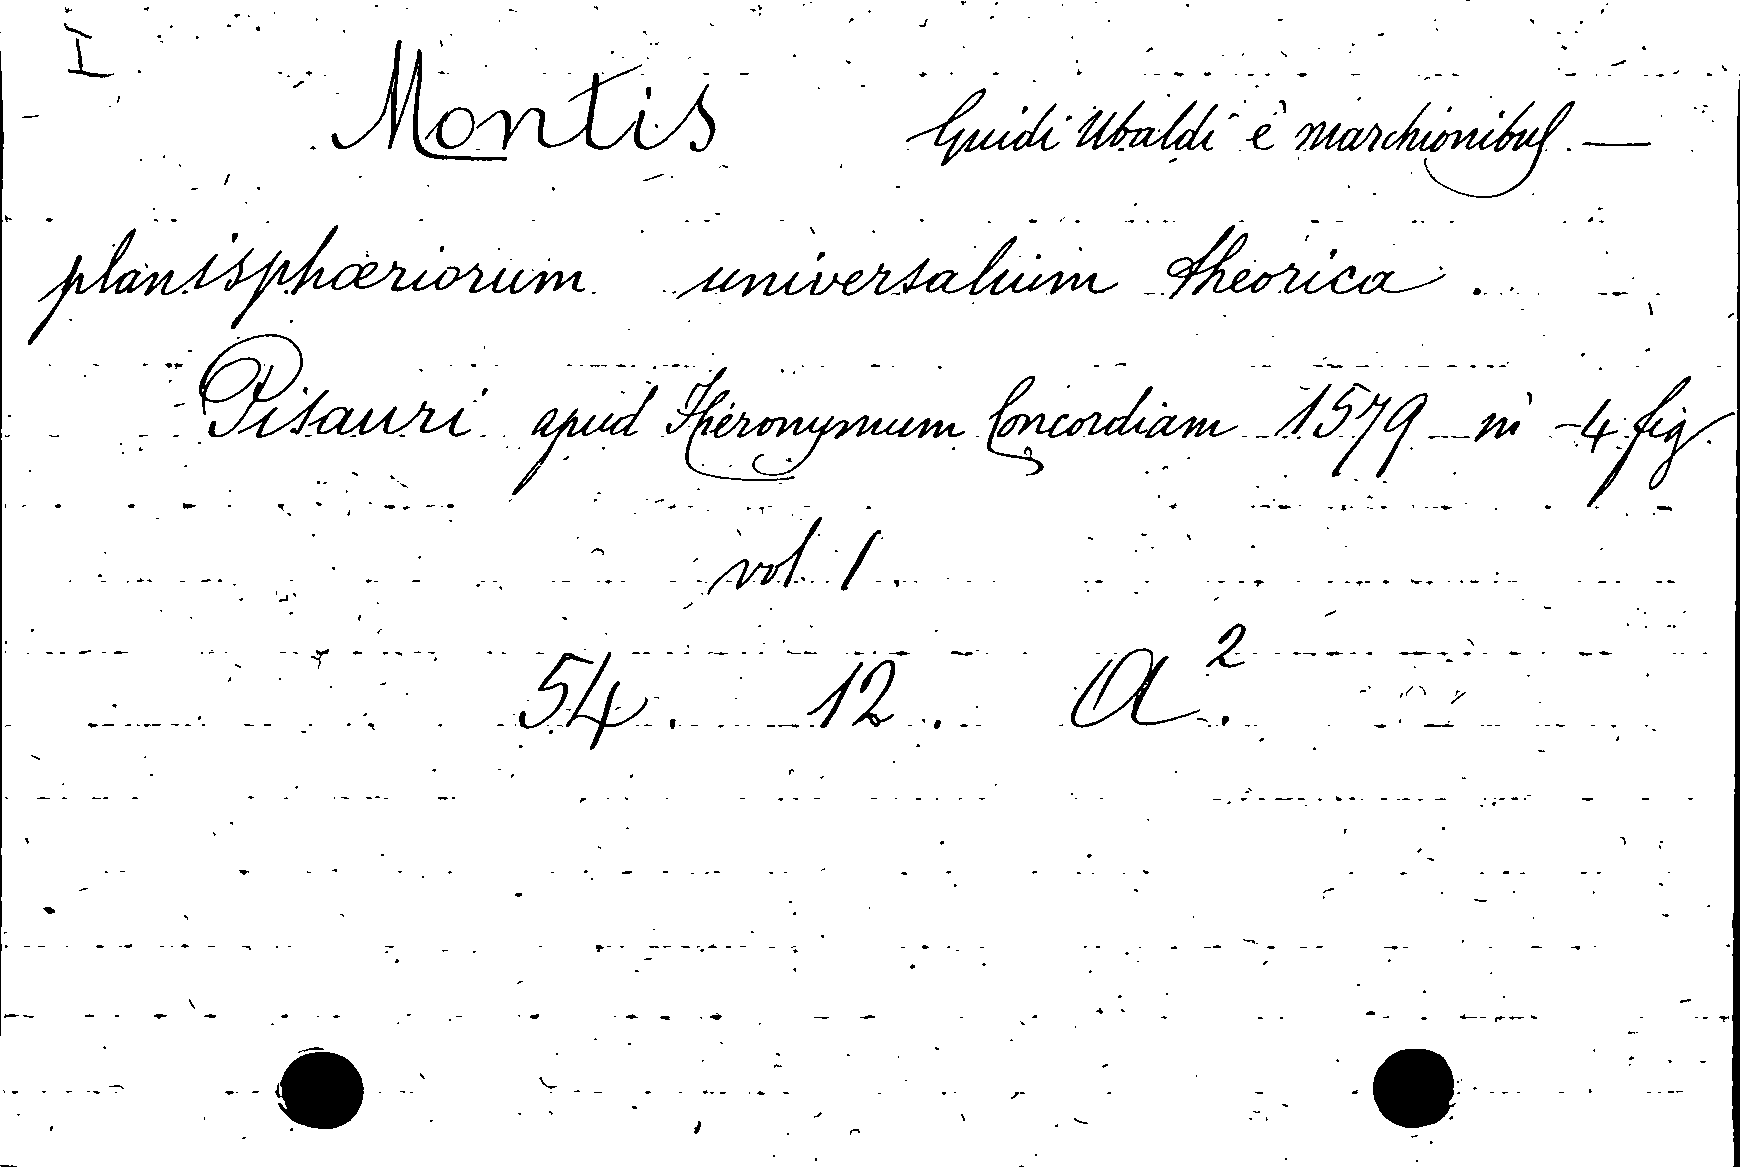 I
Montis Guidi Ubaldi è marchionibus. —
planisphæriorum universalium theorica.
Pisauri apud Hieronymum Concordiam 1579 in-4 fig.
vol. 1
54. 12. A2.